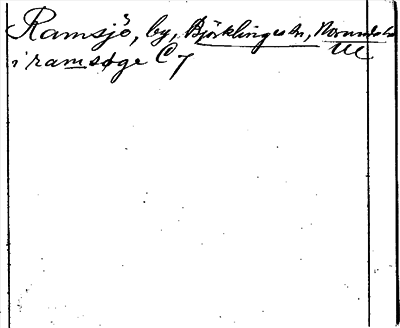 Ramsjö, by, Björklinge sn, Norunds hd
i ramsøge C 7